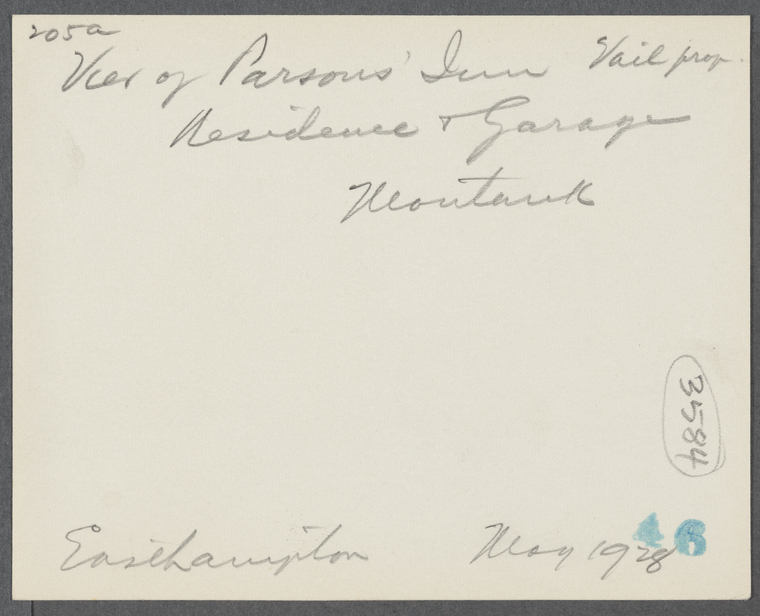 205a
View of Parsons' Inn Vail prop.
Residence & Garage
Montauk
3584
Easthampton May 1928
46